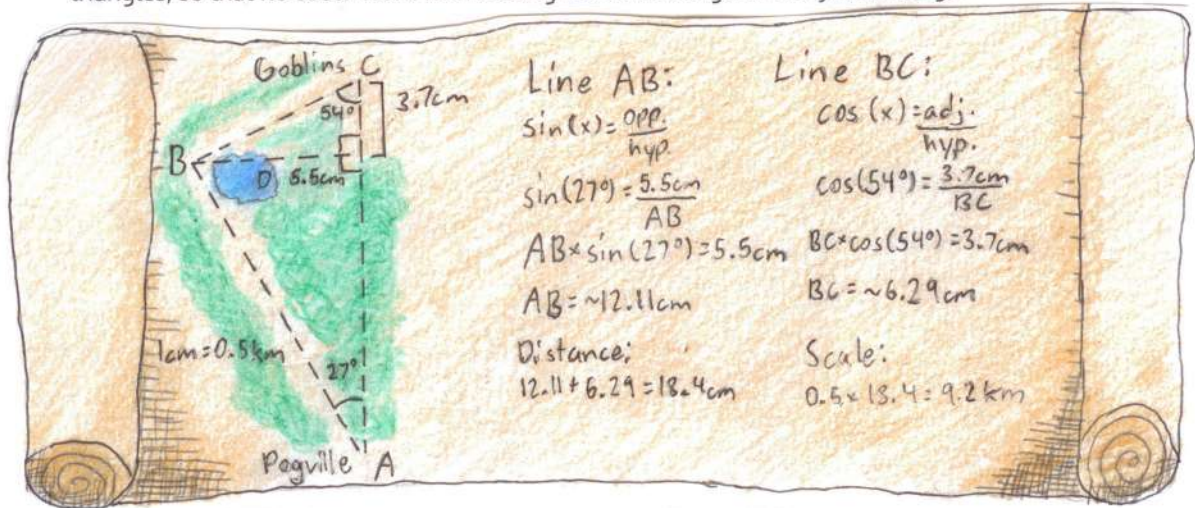 Goblins C
54°
3.7cm
B
D 5.5cm
1cm=0.5km
27°
Pogville A
Line AB:
sin(x)=opp.
hyp.
sin(27°)=5.5cm
AB
AB×sin(27°)=5.5cm
AB=~12.11cm
Distance:
12.11+6.29=18.4cm
Line BC:
cos(x)=adj.
hyp.
cos(54°)=3.7cm
BC
BC×cos(54°)=3.7cm
BC=~6.29cm
Scale:
0.5×18.4=9.2km